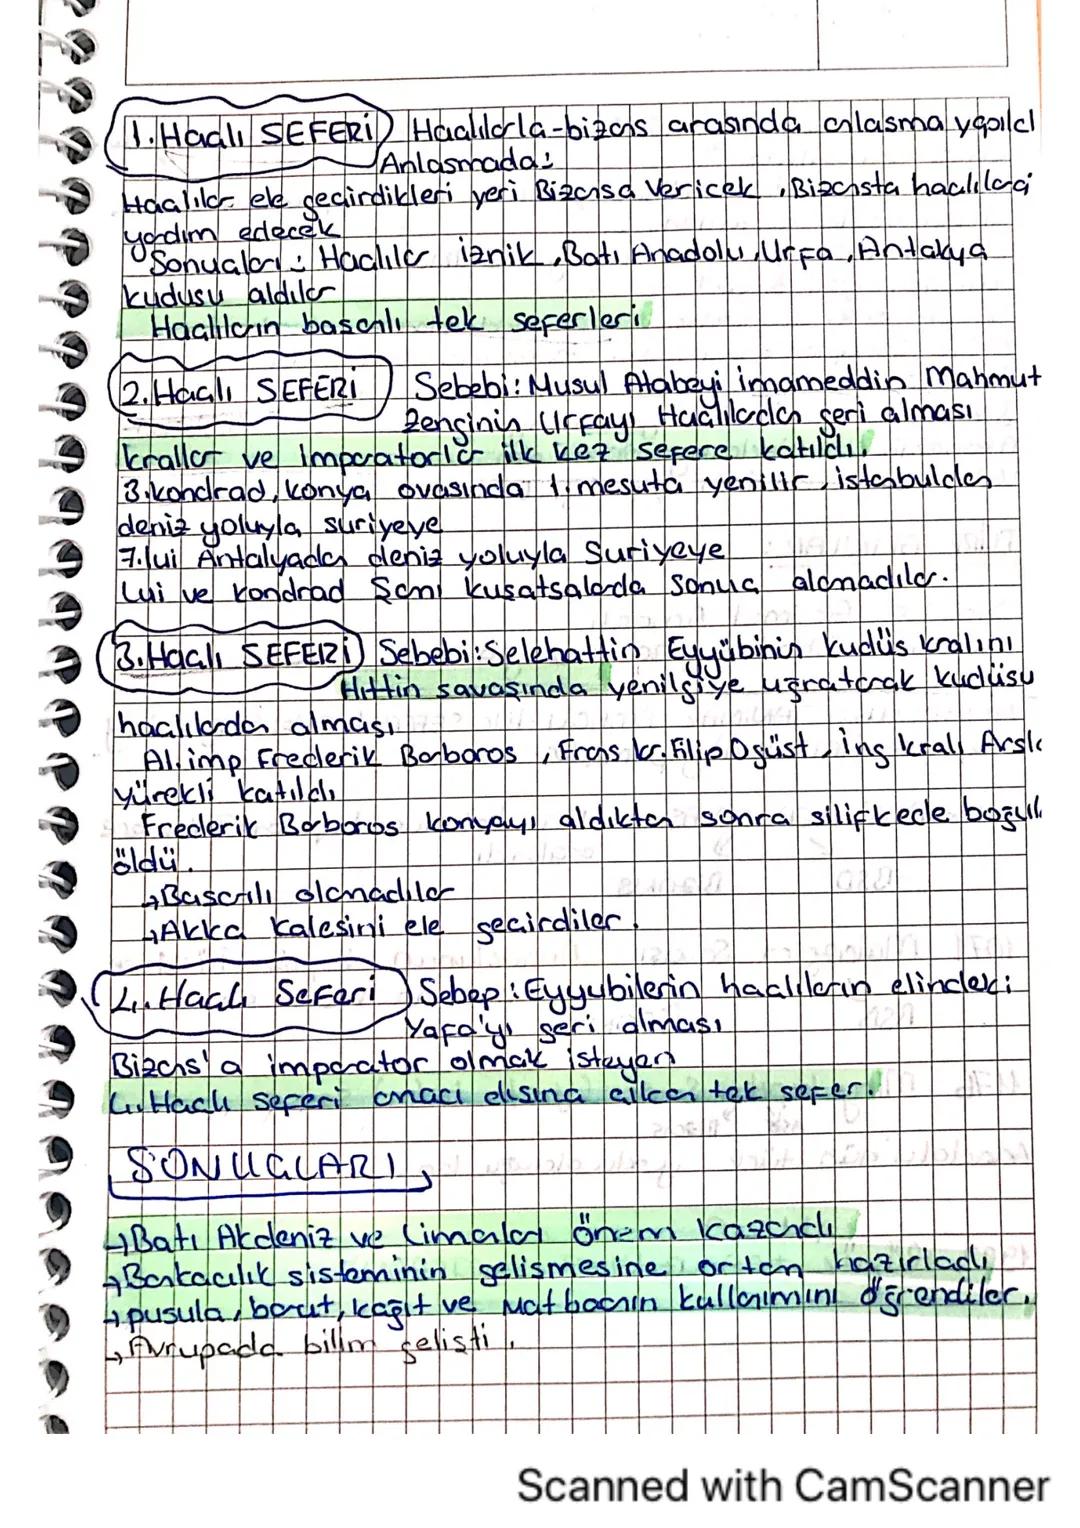 1. Haçlı SEFERİ Haçlılarla-bizans arasında anlasma yapıld
Anlasmada:
Haçlılar ele geçirdikleri yeri Bizansa Vericek, Bizansta haçlılara
yardım edecek
Sonuçları: Haçlılar iznik, Batı Anadolu, Urfa, Antakya
kudusu aldılar
Haçlıların basarılı tek seferleri
2. Haçlı SEFERİ Sebebi: Musul Atabeyi imameddin Mahmut
Zenginin Urfayı Haçlılardan geri alması
krallar ve imparatorlar ilk kez sefere katıldı.
3. kondrad, konya ovasında 1. mesuta yenilir, istanbuldan
deniz yoluyla suriyeye
7. lui Antalyadan deniz yoluyla Suriyeye
Lui ve kondrad Şamı kuşatsalarda sonuç alamadılar.
3. Haçlı SEFERİ Sebebi: Selehattin Eyyübinin kudüs kralını
Hıttin savasında yenilgiye uğratarak kudüsü
haçlılardan alması
Al. imp Frederik Barboros, Frans kr. Filip Ogüst, ing kralı Arsla
yürekli katıldı
Frederik Barboros konyayı aldıktan sonra silifkede boğul
öldü.
→Basarılı olamadılar
→Akka kalesini ele geçirdiler.
4. Haçlı Seferi Sebep: Eyyubilerin haçlıların elindeki
Yafa'yı geri alması
Bizans'a imparator olmak isteyen
4. Haçlı seferi amacı dısına çıkan tek sefer.
SONUÇLARI
→Batı Akdeniz ve limanları önem kazandı
→Bankacılık sisteminin gelismesine ortam hazırladı
→pusula, barut, kağıt ve matbaanın kullanımını öğrendiler.
→Avrupada bilim gelişti.
Scanned with CamScanner